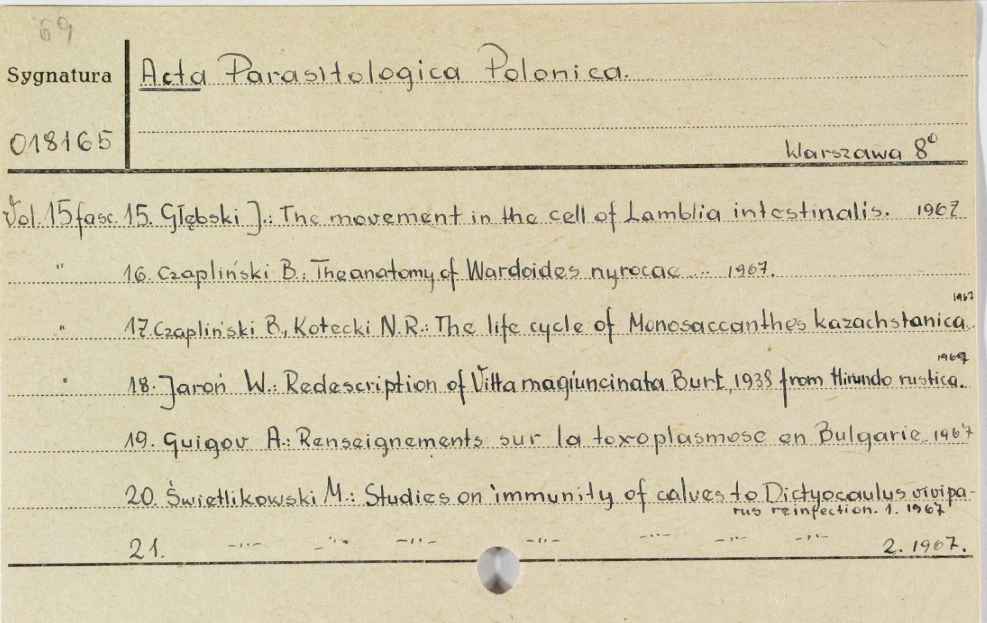 69
Sygnatura
Acta Parasitologica Polonica.
018165
Warszawa 8°
Vol. 15 fasc. 15. Głębski J.: The movement in the cell of Lamblia intestinalis. 1967
" 16. Czapliński B.: The anatomy of Wardoides nyrocae ... 1967.
" 17. Czapliński B., Kotecki N.R.: The life cycle of Monosaccanthes kazachstanica. 1967
" 18. Jaroń W.: Redescription of Vitta magiuncinata Burt, 1938 from Hirundo rustica. 1967
19. Guigov A.: Renseignements sur la toxoplasmose en Bulgarie. 1967
20. Świetlikowski M.: Studies on immunity of calves to Dictyocaulus vivipa-
rus reinfection. 1. 1967
21. -"- -"- -"- -"- -"- -"- -"- 2. 1967.